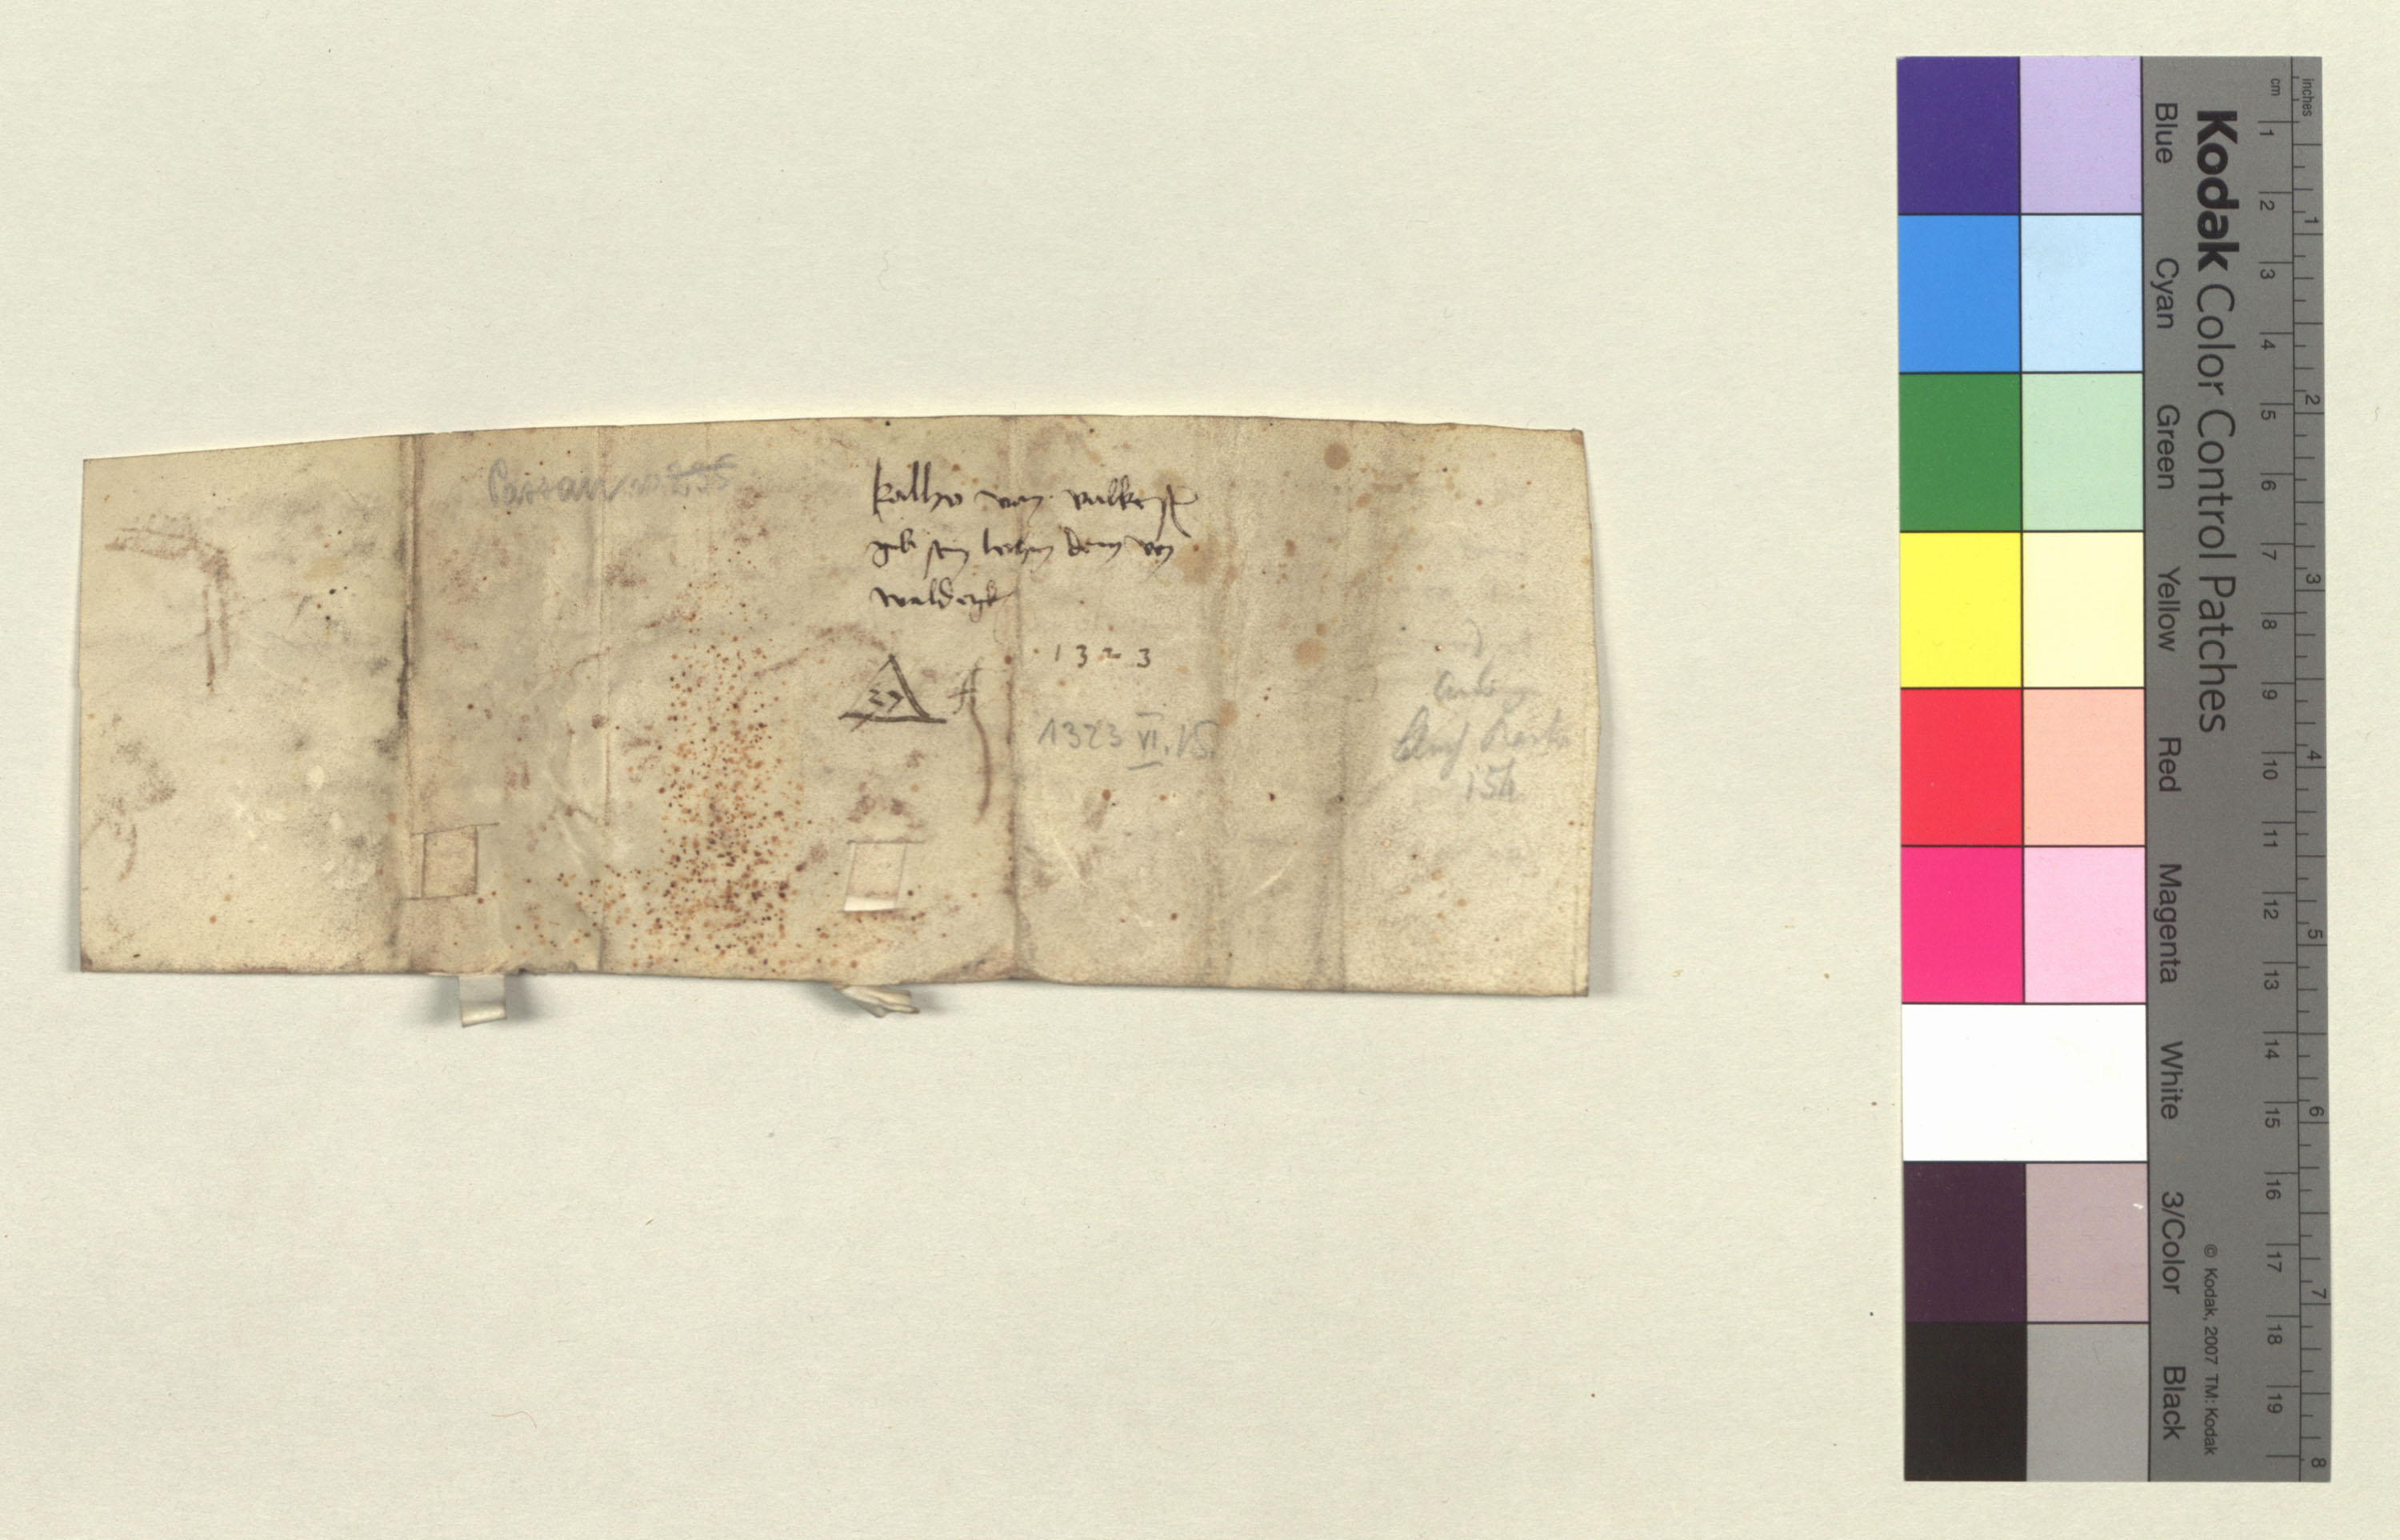 Passau
kalho von valkenst
geb sein lechn dem von
waldegk
27
1323
1323 VI. 15.
Kodak Color Control Patches
Blue Cyan Green Yellow Red Magenta White 3/Color Black
© Kodak, 2007 TM: Kodak
inches 1 2 3 4 5 6 7 8
cm 1 2 3 4 5 6 7 8 9 10 11 12 13 14 15 16 17 18 19